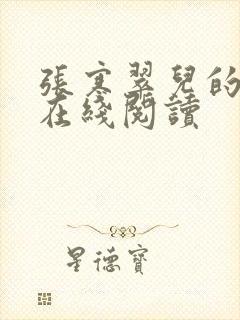 張寒翠兒的
在綫閱讀
星德寶